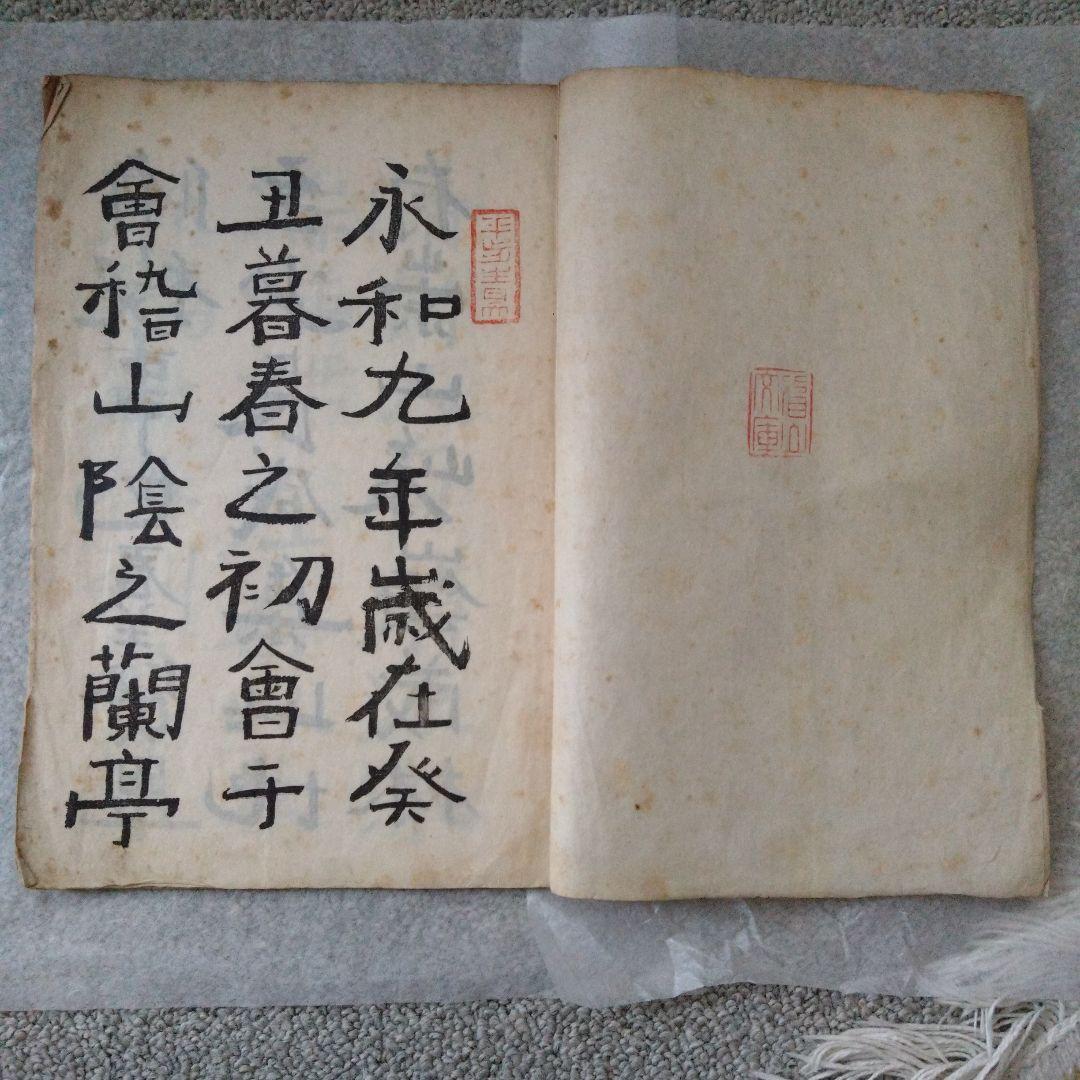 永和九年歳在癸
丑暮春之初會于
會稽山陰之蘭亭
文庫